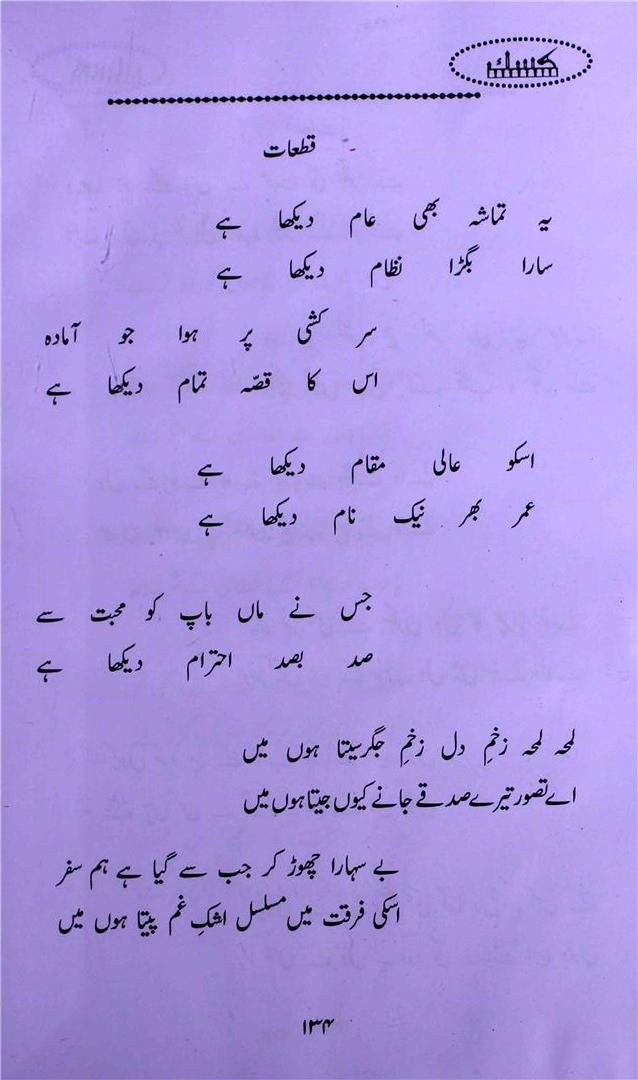 کسک
قطعات
یہ تماشہ بھی عام دیکھا ہے
سارا بگڑا نظام دیکھا ہے
سر کشی پر ہوا جو آمادہ
اس کا قصّہ تمام دیکھا ہے
اسکو عالی مقام دیکھا ہے
عمر بھر نیک نام دیکھا ہے
جس نے ماں باپ کو محبت سے
صد بصد احترام دیکھا ہے
لمحہ لمحہ زخمِ دل زخمِ جگر سیتا ہوں میں
اے تصور تیرے صدقے جانے کیوں جیتا ہوں میں
بے سہارا چھوڑ کر جب سے گیا ہے ہم سفر
اسکی فرقت میں مسلسل اشکِ غم پیتا ہوں میں
۱۳۴